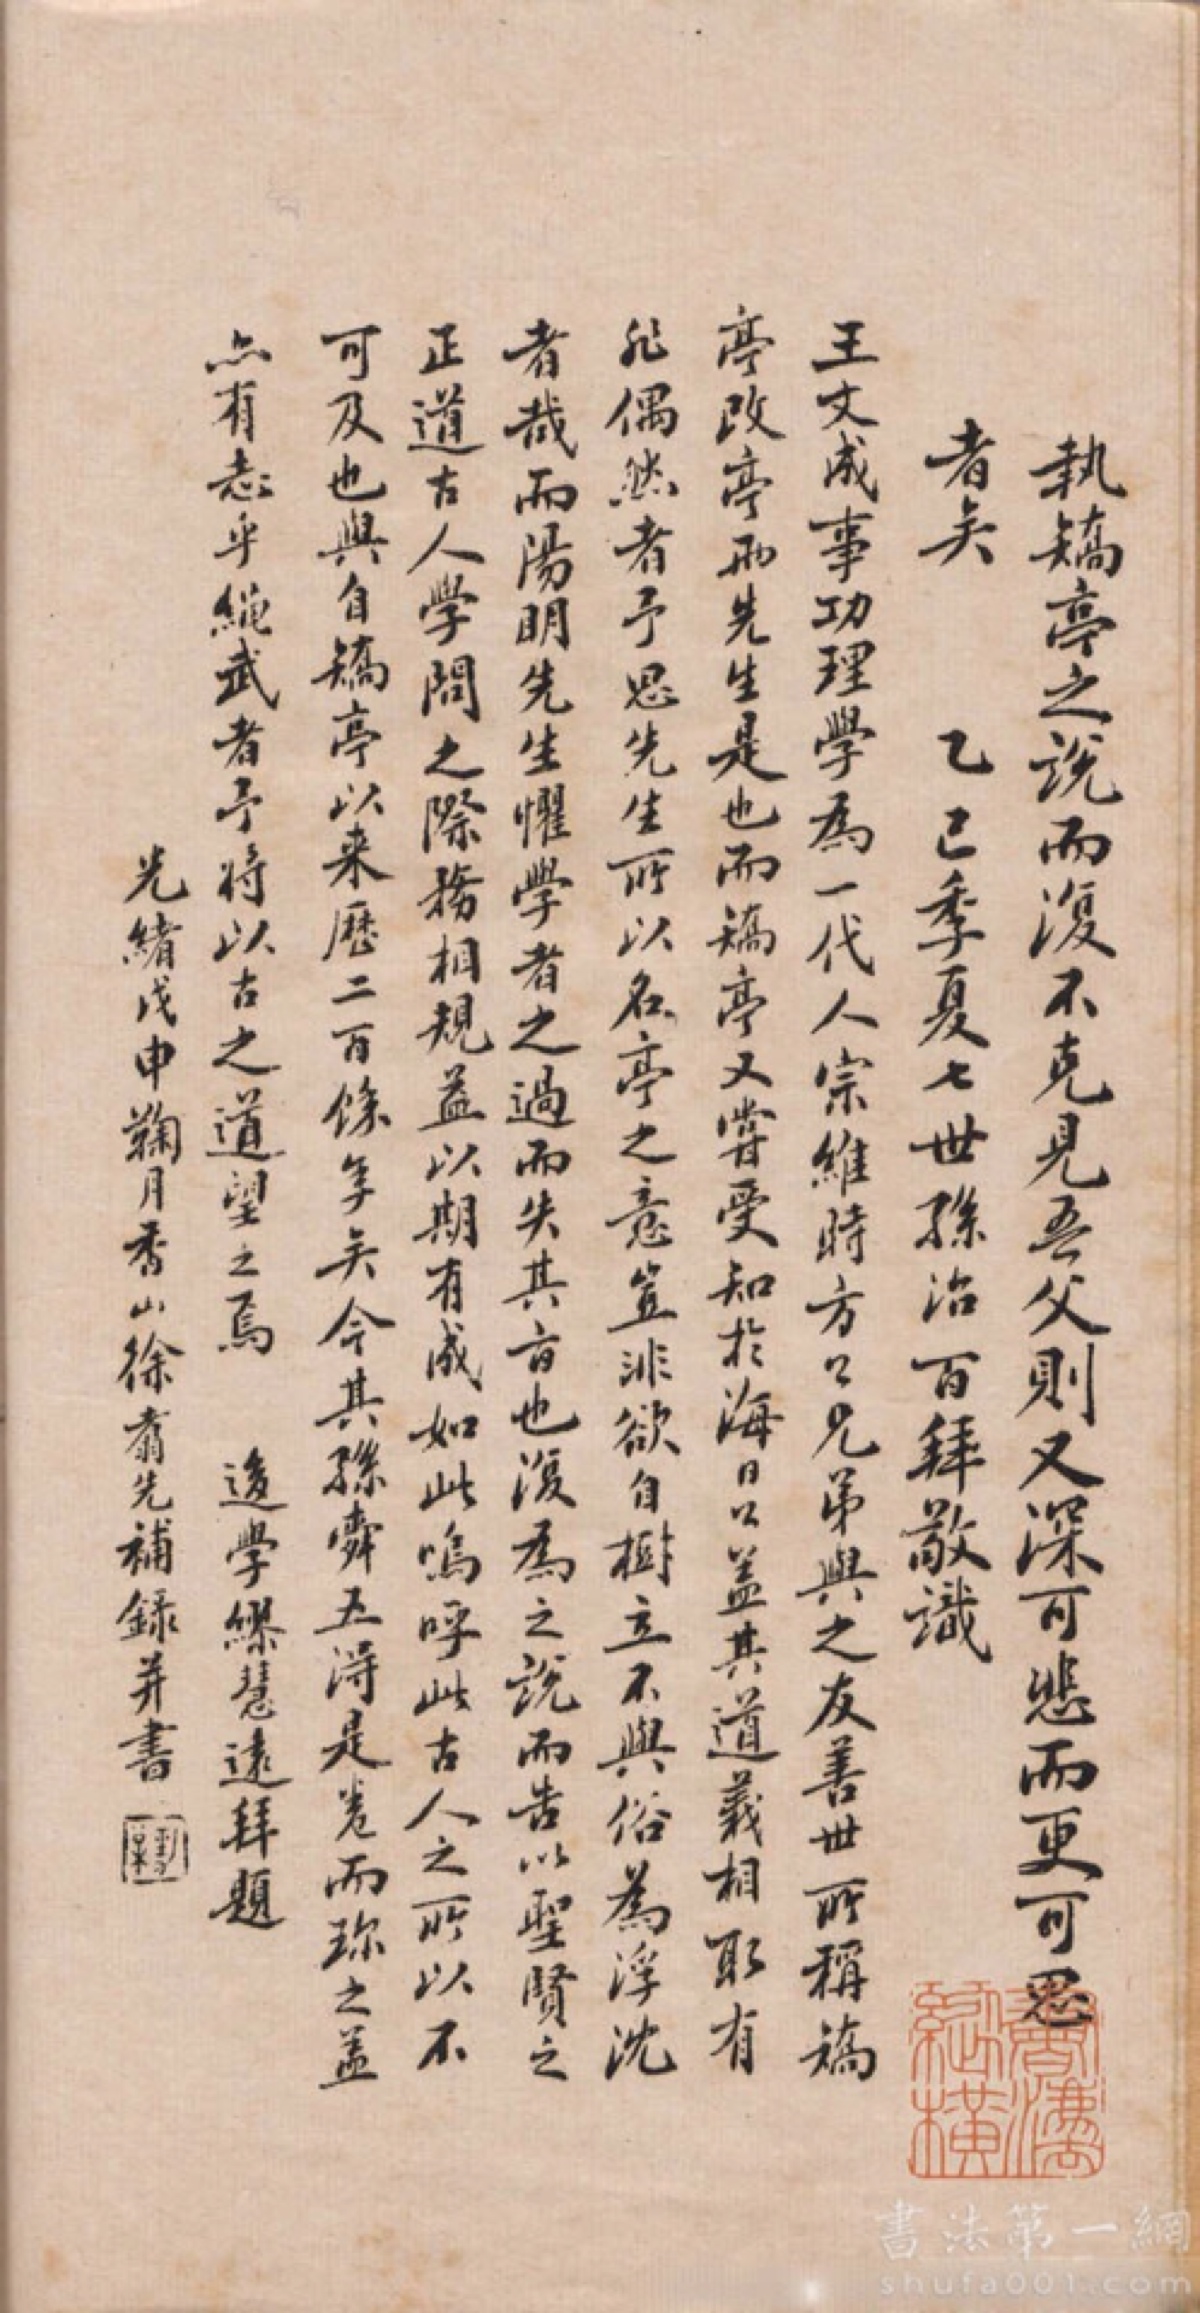 執矯亭之說而復不克見吾父則又深可悲而更可思
者矣 乙巳季夏七世孫治百拜敬識
王文成事功理學為一代人宗維時方公兄弟與之友善世所稱矯
亭改亭兩先生是也而矯亭又嘗受知於海日公蓋其道義相取有
非偶然者予思先生所以名亭之意豈非欲自樹立不與俗為浮沈
者哉而陽明先生懼學者之過而失其旨也復為之說而告以聖賢之
正道古人學問之際務相規益以期有成如此嗚呼此古人之所以不
可及也與自矯亭以来歷二百餘年矣今其孫舜五淂是卷而珎之盖
亦有志乎繩武者予将以古之道望之焉 後學繆慧遠拜題
光緒戊申鞠月香山徐翕先補録并書
書法第一網
shufa001.com